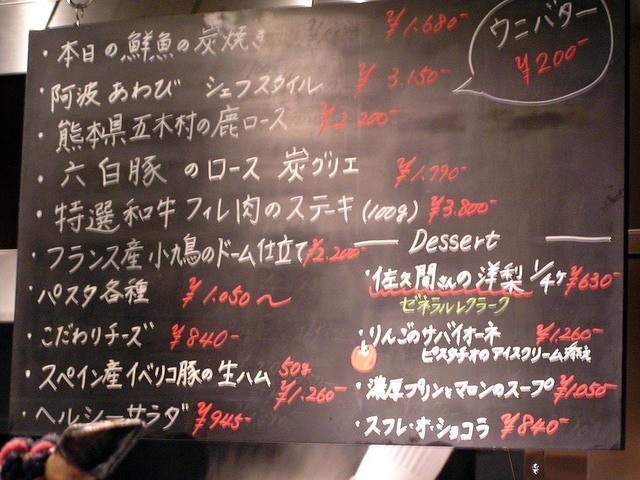 ・本日の鮮魚の炭焼き ¥1.680-
ウニバター
¥200-
・阿波あわび シェフスタイル ¥3.150-
・熊本県五木村の鹿ロース ¥2.200-
・六白豚のロース 炭グリエ ¥1.790-
・特選和牛フィレ肉のステーキ(100g) ¥3.800-
・フランス産小鳩のドーム仕立て ¥2.200-
・パスタ各種 ¥1.050〜
・こだわりチーズ ¥840-
・スペイン産イベリコ豚の生ハム 50g ¥1.260-
・ヘルシーサラダ ¥945-
Dessert
・佐久間さんの洋梨 1/4ケ ¥630-
ゼネラルレクラーク
・りんごのサバイオーネ ¥1.260-
ピスタチオのアイスクリーム添え
・濃厚プリンとマロンのスープ ¥1050-
・スフレ・オ・ショコラ ¥840-